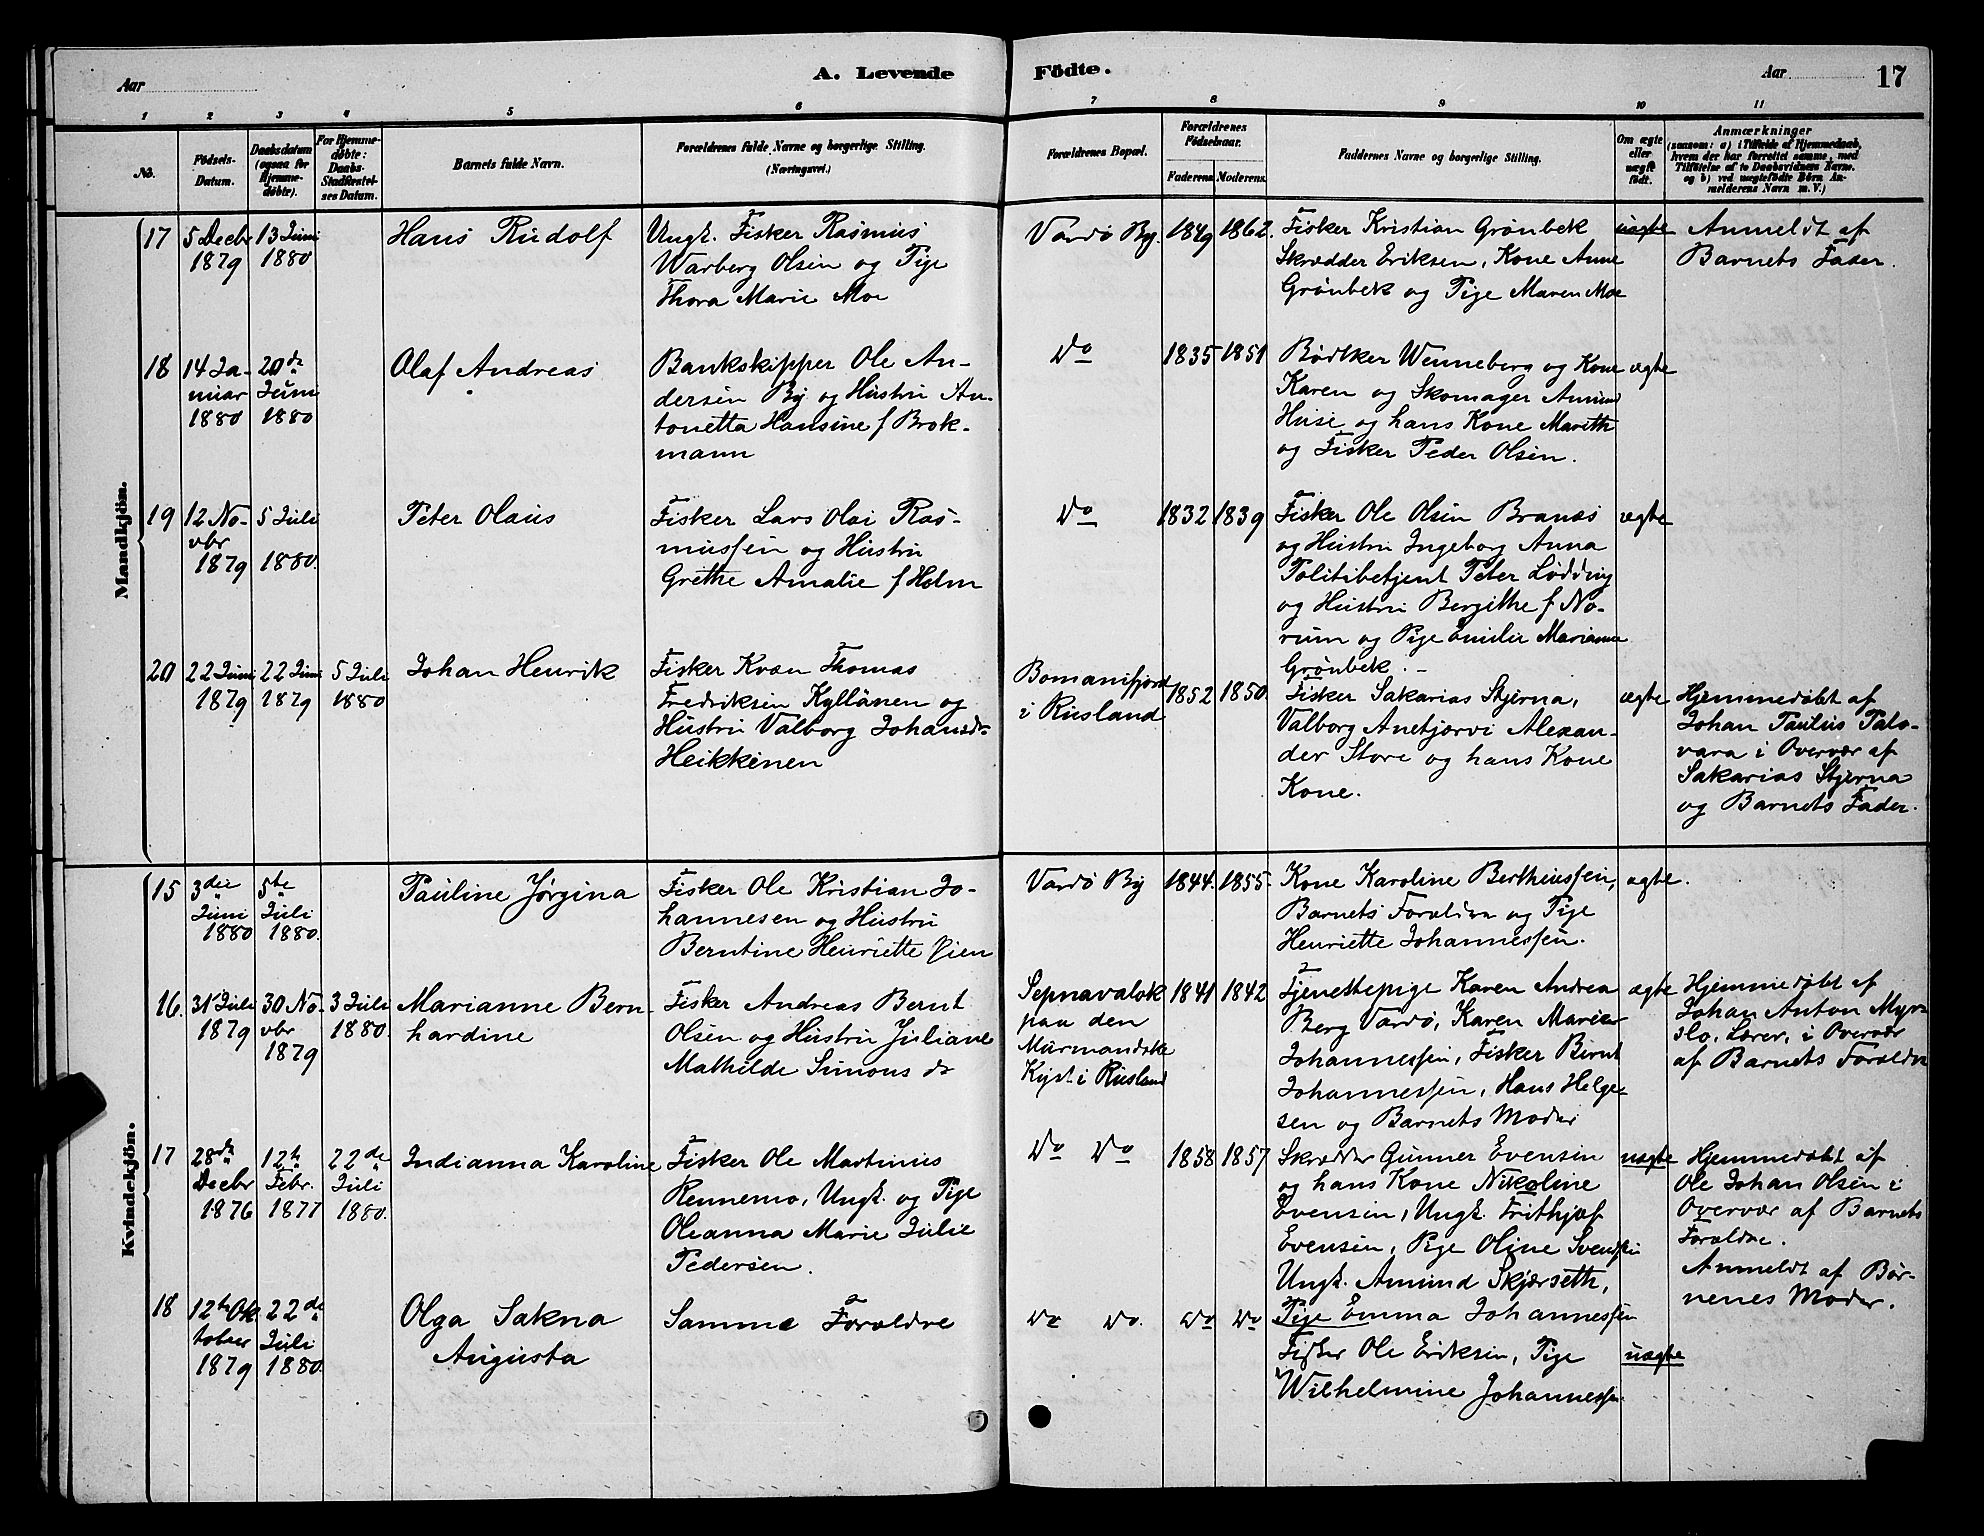 Aar
A. Levende
Födte.
Aar
17
1 2 3 4 5 6 7 8 9 10 11
No.
Födsels-
Datum.
Daabsdatum
(ogsaa for
Hjemme-
döbte).
For Hjemme-
döbte:
Daabs-
Stadfæstel-
ses Datum.
Barnets fulde Navn.
Forældrenes fulde Navne og borgerlige Stilling.
(Næringsvei.)
Forældrenes Bopæl.
Forældrenes
Födselsaar.
Faderens.
Moderens.
Faddernes Navne og borgerlige Stilling.
Om ægte
eller
uægte
födt.
Anmærkninger
(saasom: a) i Tilfælde af Hjemmedaab,
hvem der har forrettet samme, med
Tilföielse af to Daabsvidners Navne.
og b) ved uægtefödte Börn An-
melderens Navn m. V.)
Mandkjön.
17
5 Decbr
1879
13 Juni
1880
Hans Rudolf
Ungk. Fisker Rasmus
Warberg Olsen og Pige
Thora Marie Moe
Vardö By.
1849
1862.
Fisker Kristian Grönbek
Skrædder Eriksen, Kone Anne
Grönbek og Pige Maren Moe
uægte
Anmeldt af
Barnets Fader.
18
14 Ja-
nuar
1880
20de
Juni
1880
Olaf Andreas
Bankskipper Ole An-
dersen By og Hustru An-
tonetta Hansine f Brok-
mann
Do
1835
1851
Bödker Wenneberg og Kone
Karen og Skomager Amund
Huse og hans Kone Mareth
og Fisker Peder Olsen.
ægte
19
12 No-
vbr
1879
5 Juli
1880.
Peter Olaus
Fisker Lars Olai Ras-
mussen og Hustru
Grethe Amalie f Holm
Do
1832
1839
Fisker Ole Olsen Branæs
og Hustru Ingeborg Anna
Politibetjent Peter Lödding
og Hustru Bergithe f No-
rum og Pige Emilie Marianne
Grönbek.
ægte
20
22 Juni
1879
22 Juni
1879
5 Juli
1880
Johan Henrik
Fisker Kvæn Thomas
Fredriksen Kyllänen og
Hustru Valborg Johansd-
Heikkinen
Bomanifjord
i Rusland
1852
1850.
Fisker Sakarias Stjerna,
Valborg Anetjærvi Alexan-
der Store og hans Kone
Kone.
ægte
Hjemmedöbt af
Johan Paulus Palo-
vara i Overvær af
Sakarias Stjerna
og Barnets Fader.
Kvindekjön.
15
3die
Juni
1880
5te
Juli
1880.
Pauline Jørgina
Fisker Ole Kristian Jo-
hannesen og Hustru
Berntine Henriette
Vardö By
1844.
1855.
Kone Karoline Bertheussen,
Barnets Forældre og Pige
Henriette Johannessen.
ægte.
16.
31 Juli
1879
30 No-
vbr
1879
3 Juli
1880.
Marianne Bern
hardine
Fisker Andreas Bernt
Olsen og Hustru Juliane
Mathilde Simonsdr
Sepnavalok
paa den
Murmandske
Kyst i Rusland
1841
1842
Tjenestepige Karen Andrea
Berg Vardö, Karen Marie
Johannessen, Fisker Bernt
Johannessen, Hans Helge-
sen og Barnets Moder
ægte
Hjemmedöbt af
Johan Anton Myrs-
slo, Lærer, i Overvær
af Barnets Forældre
17
28de
Decbr
1876
12te
Febr.
1877
22de
Juli
1880.
Indianna Karoline
Fisker Ole Martinus
Rennemo, Ungk. og Pige
Oleanna Marie Julie
Pedersen.
Do Do
1858
1857
Skrædder Gunner Evensen
og hans Kone Nikoline
Evensen, Ungk. Frithjof
Evensen, Pige Oline Svensen
Ungk. Amund Skjærseth,
Pige Emma Johannessen
uægte
Hjemmedöbt af
Ole Johan Olsen i
Overvær af Barnets
Forældre.
Anmeldt af Bør-
nenes Moder.
18
12te Ok
tober
1879
22de
Juli
1880.
Olga Sakna
Augusta
Samme Forældre
Do Do.
Do
Do
Fisker Ole Eriksen, Pige
Wilhelmine Johannessen
uægte